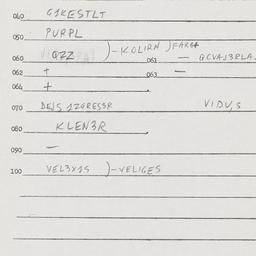 040 G1KESTLT
050 PURPL
060 QZZ )-KOLIRN )FARBA
061 — QCVAJ3RLA.
062 +
063 —
064 +
070 DEJS 1ZGRESSR VIDU,S
080 KLEN3R
090 —
100 VEL3X1S )-VELIGES